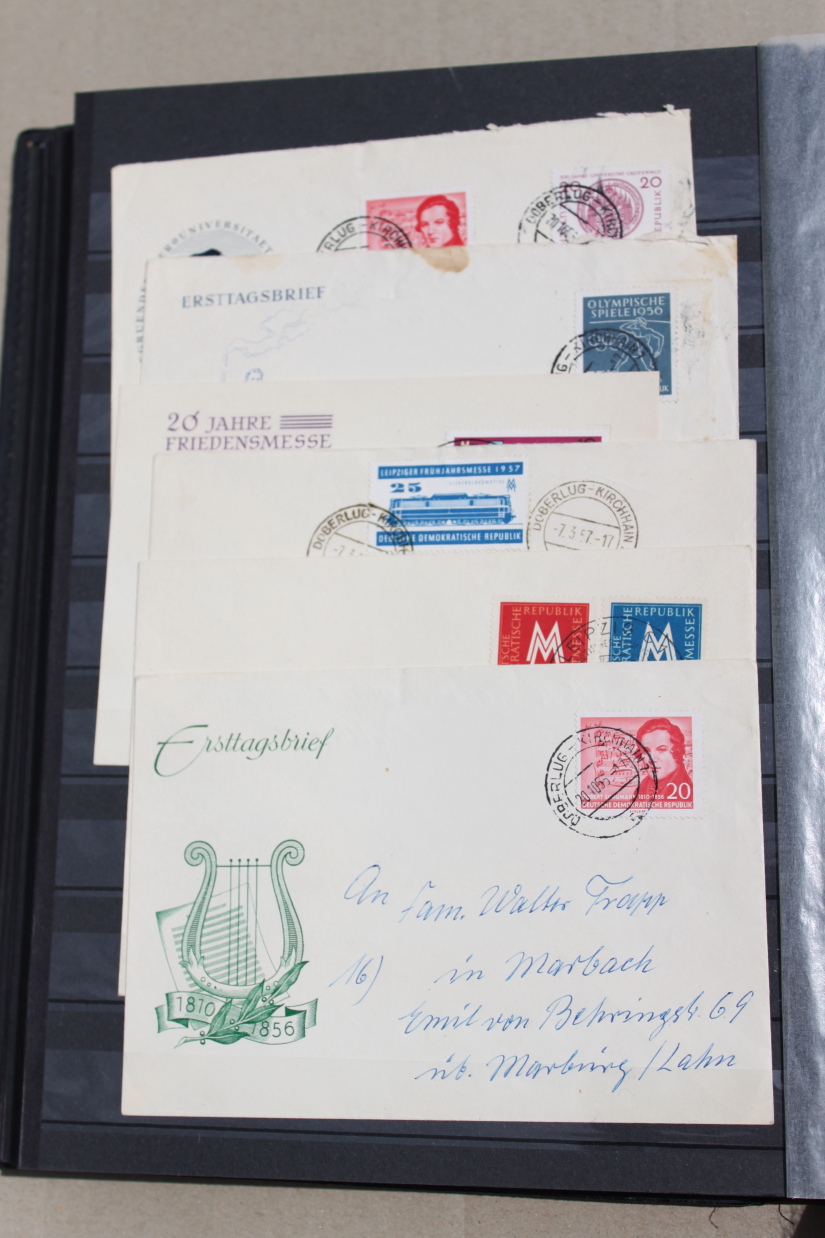 20
REPUBLIK
DOBERLUG-KIRCH
ERSTTAGSBRIEF
OLYMPISCHE
SPIELE 1956
20 JAHRE
FRIEDENSMESSE
LEIPZIGER FRÜHJAHRSMESSE 1957
25
DEUTSCHE DEMOKRATISCHE REPUBLIK
DOBERLUG-KIRCHH
DOBERLUG-KIRCHHAIN
-7.3.57.-17
REPUBLIK
MM
MESSE
REPUBLIK
MM
MESSE
Ersttagsbrief
DOBERLUG-KIRCHHAIN
20
ROBERT SCHUMANN 1810-1856
DEUTSCHE DEMOKRATISCHE REPUBLIK
1810
1856
An Fam. Walter Trapp
16) in Marbach
Emil von Behringstr. 69
üb. Marburg/Lahn